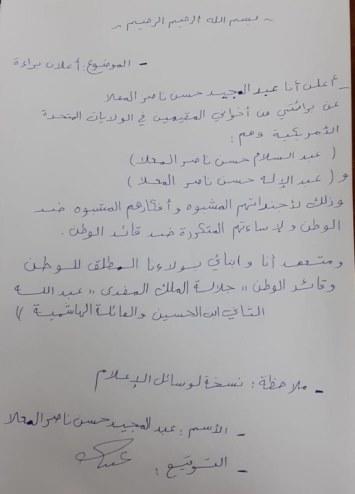 ~ بسم الله الرحمن الرحيم ~
- الموضوع: أعلان براءة
- أعلن أنا عبدالمجيد حسن ناصر المعلا
عن برائتي من أخواني المقيمين في الولايات المتحدة
الأمريكية وهم:
( عبد السلام حسن ناصر المعلا )
و ( عبد الإله حسن ناصر المعلا )
وذلك لأجنداتهم المشبوه وأفكارهم المشبوه ضد
الوطن ولإساءتهم المتكررة ضد قائد الوطن.
ومتعهد أنا وابنائي بولاءنا المطلق للوطن
وقائد الوطن " جلالة الملك المفدى " عبدالله
الثاني ابن الحسين والعائلة الهاشمية "
- ملاحظة: نسخة لوسائل الإعلام
- الأسم: عبدالمجيد حسن ناصر المعلا
- التوقيع: